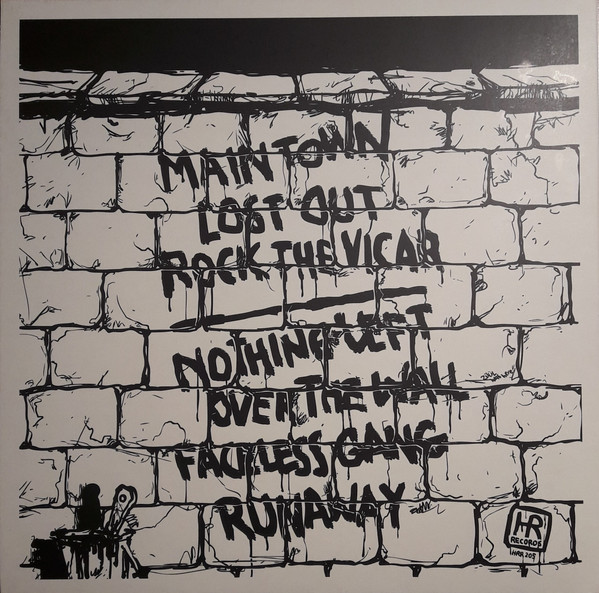 MAIN TOWN
LOST OUT
ROCK THE VICAR
NOTHING LEFT
OVER THE WALL
FACELESS GANG
RUNAWAY
HR
RECORDS
HRR 209